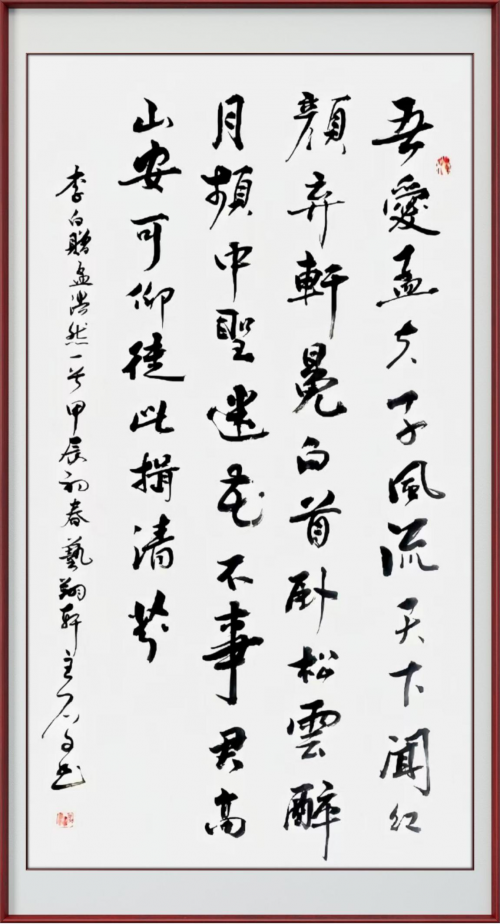 吾愛孟夫子風流天下聞红
顏弃軒冕白首卧松雲醉
月頻中聖迷花不事君高
山安可仰徒此揖清芬
李白贈孟浩然一首甲辰初春藝翔軒主书